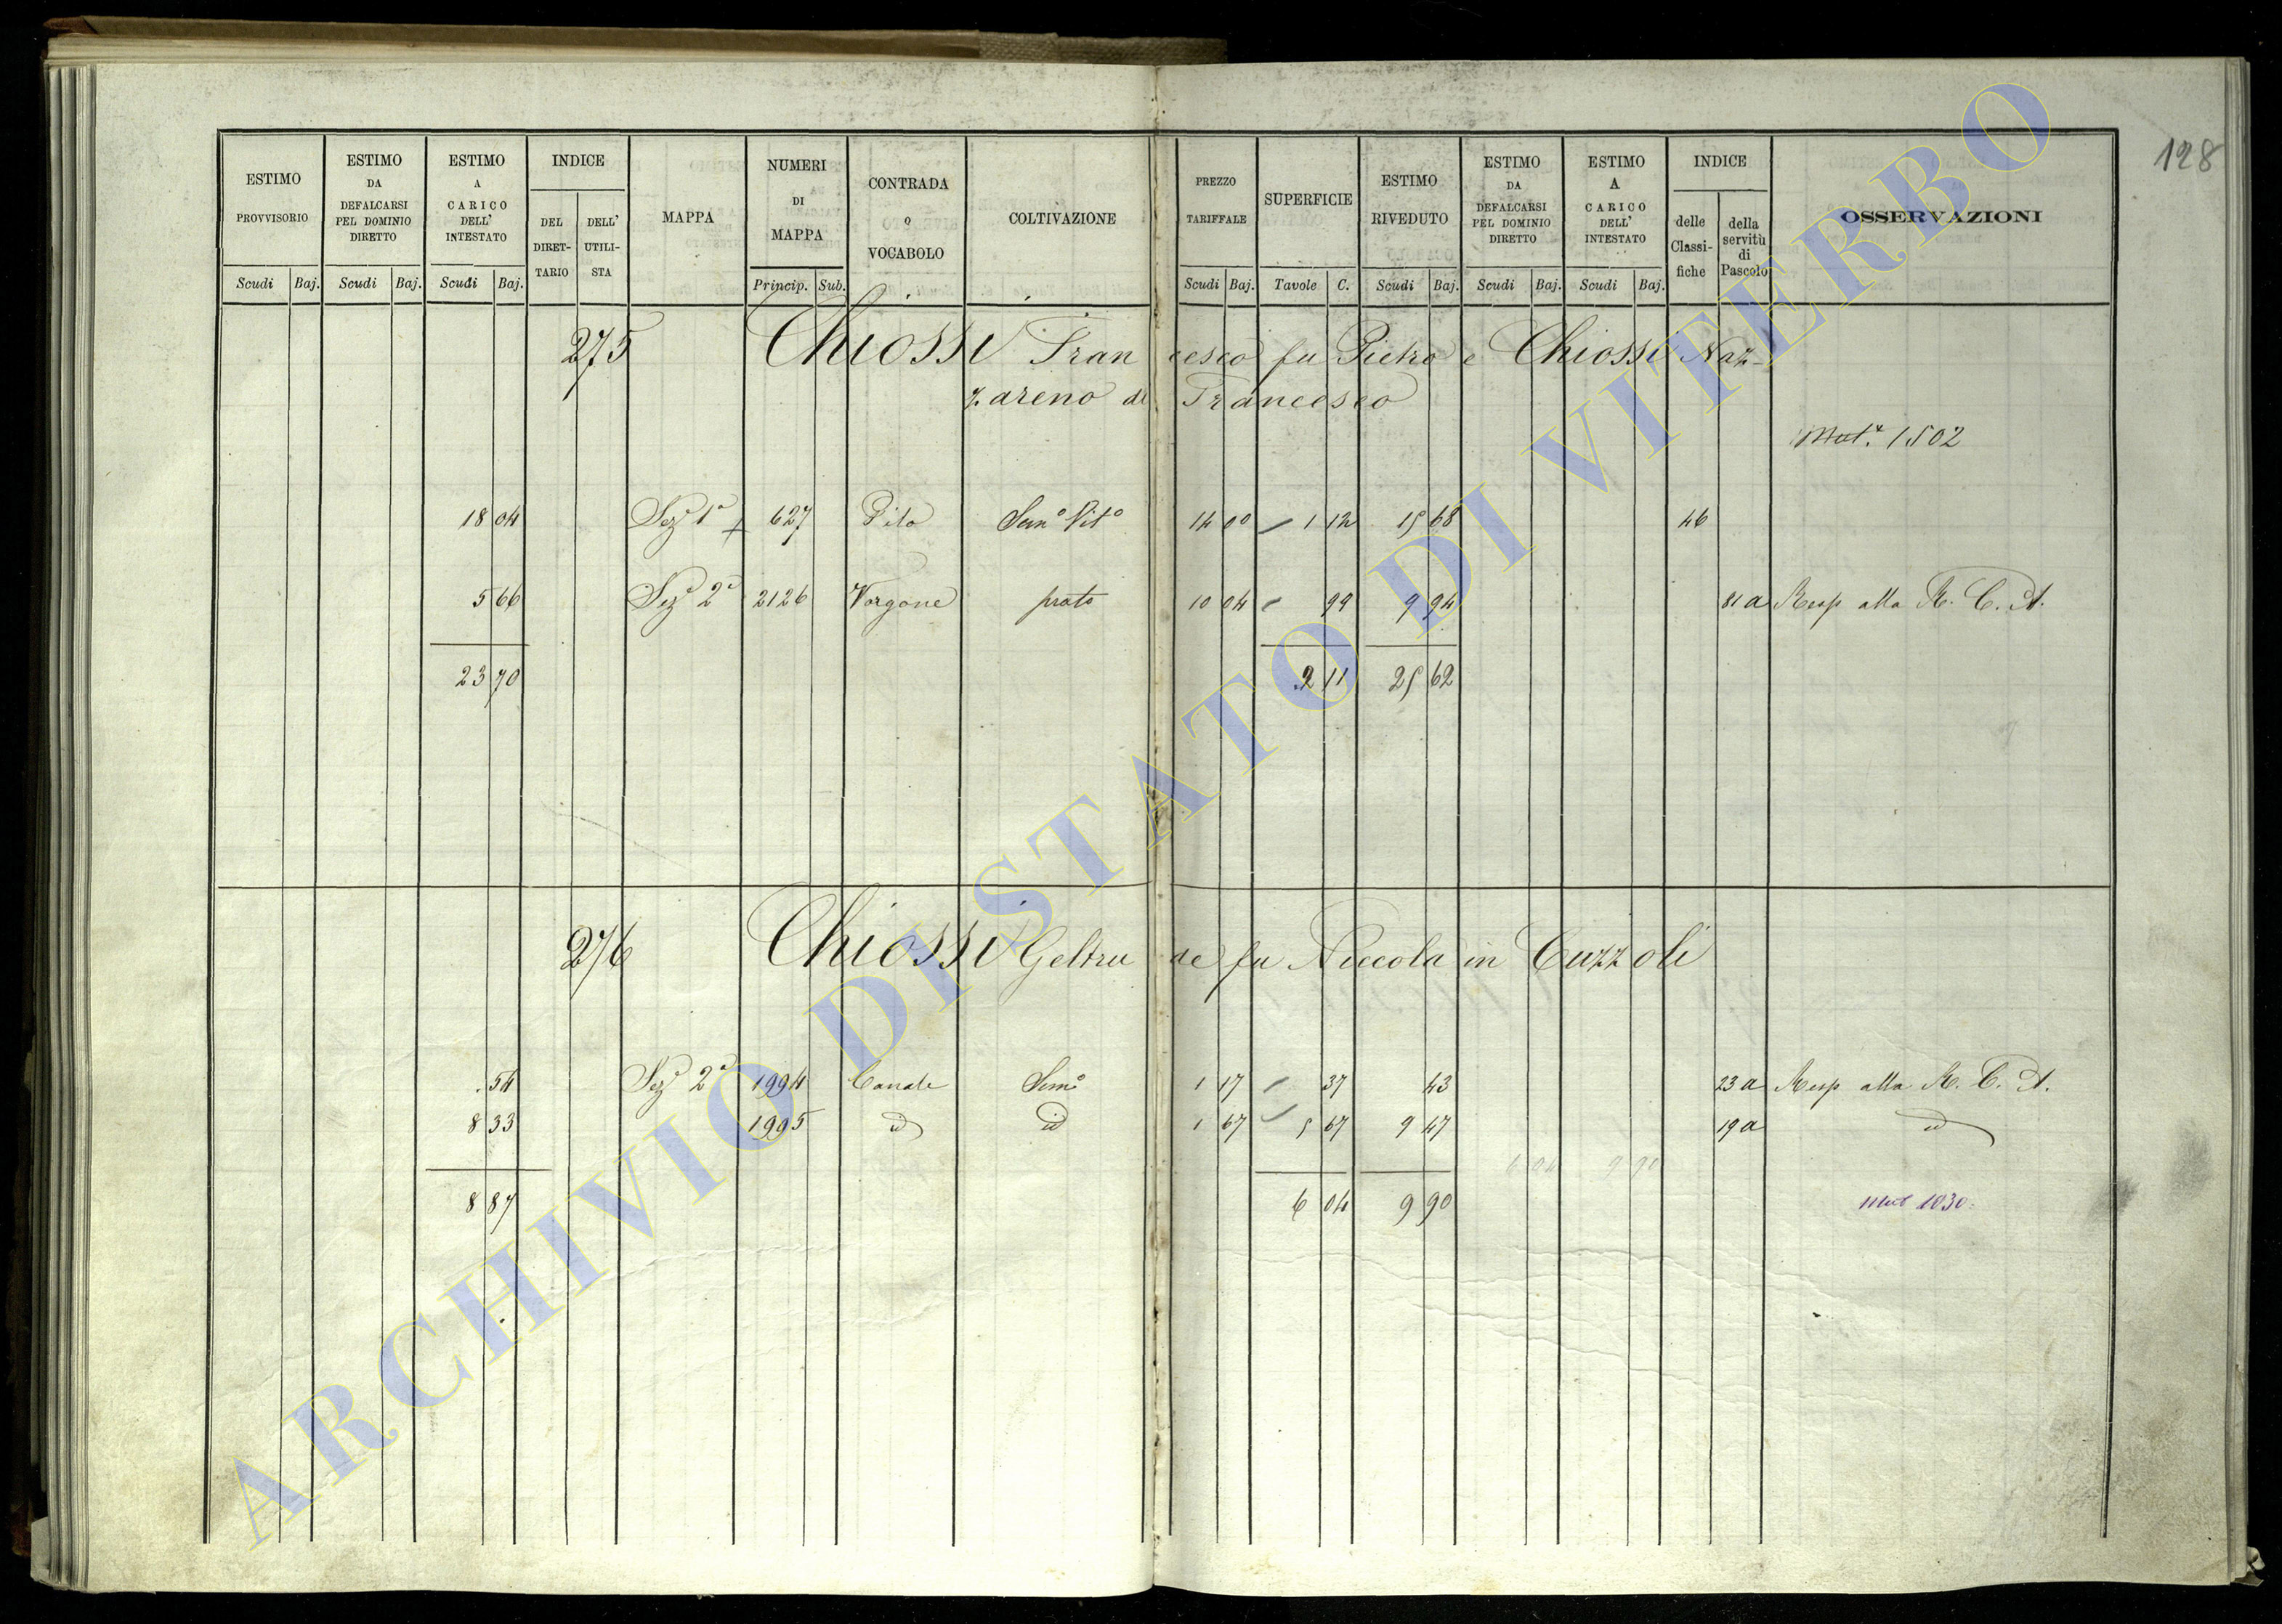 128
ESTIMO PROVVISORIO ESTIMO DA DEFALCARSI PEL DOMINIO DIRETTO ESTIMO A CARICO DELL' INTESTATO INDICE DEL DIRET-TARIO DELL' UTILI-STA MAPPA NUMERI DI MAPPA CONTRADA o VOCABOLO COLTIVAZIONE PREZZO TARIFFALE SUPERFICIE ESTIMO RIVEDUTO ESTIMO DA DEFALCARSI PEL DOMINIO DIRETTO ESTIMO A CARICO DELL' INTESTATO INDICE delle Classi-fiche della servitù di Pascolo OSSERVAZIONI
Scudi Baj. Scudi Baj. Scudi Baj. Princip. Sub. Scudi Baj. Tavole C. Scudi Baj. Scudi Baj. Scudi Baj.
275 Chiossi Francesco fu Pietro e Chiossi Naz-
zareno di Francesco
Mut.e 1502
18 04 Sez.e 1a 627 Pilo Sem.o Vit.o 14 00 1 12 15 68 46
5 66 Sez.e 2a 2126 Vorgone prato 10 04 99 9 94 81 a Resp alla R. C. A.
23 70 2 11 25 62
276 Chiossi Geltrude fu Niccola in Cuzzoli
54 Sez.e 2a 1994 Canale Sem.o 1 17 37 43 23 a Resp alla R. C. A.
8 33 1995 id id 1 67 5 67 9 47 19 a id
6 04 9 90
8 87 6 04 9 90 Mut 1030
ARCHIVIO DI STATO DI VITERBO